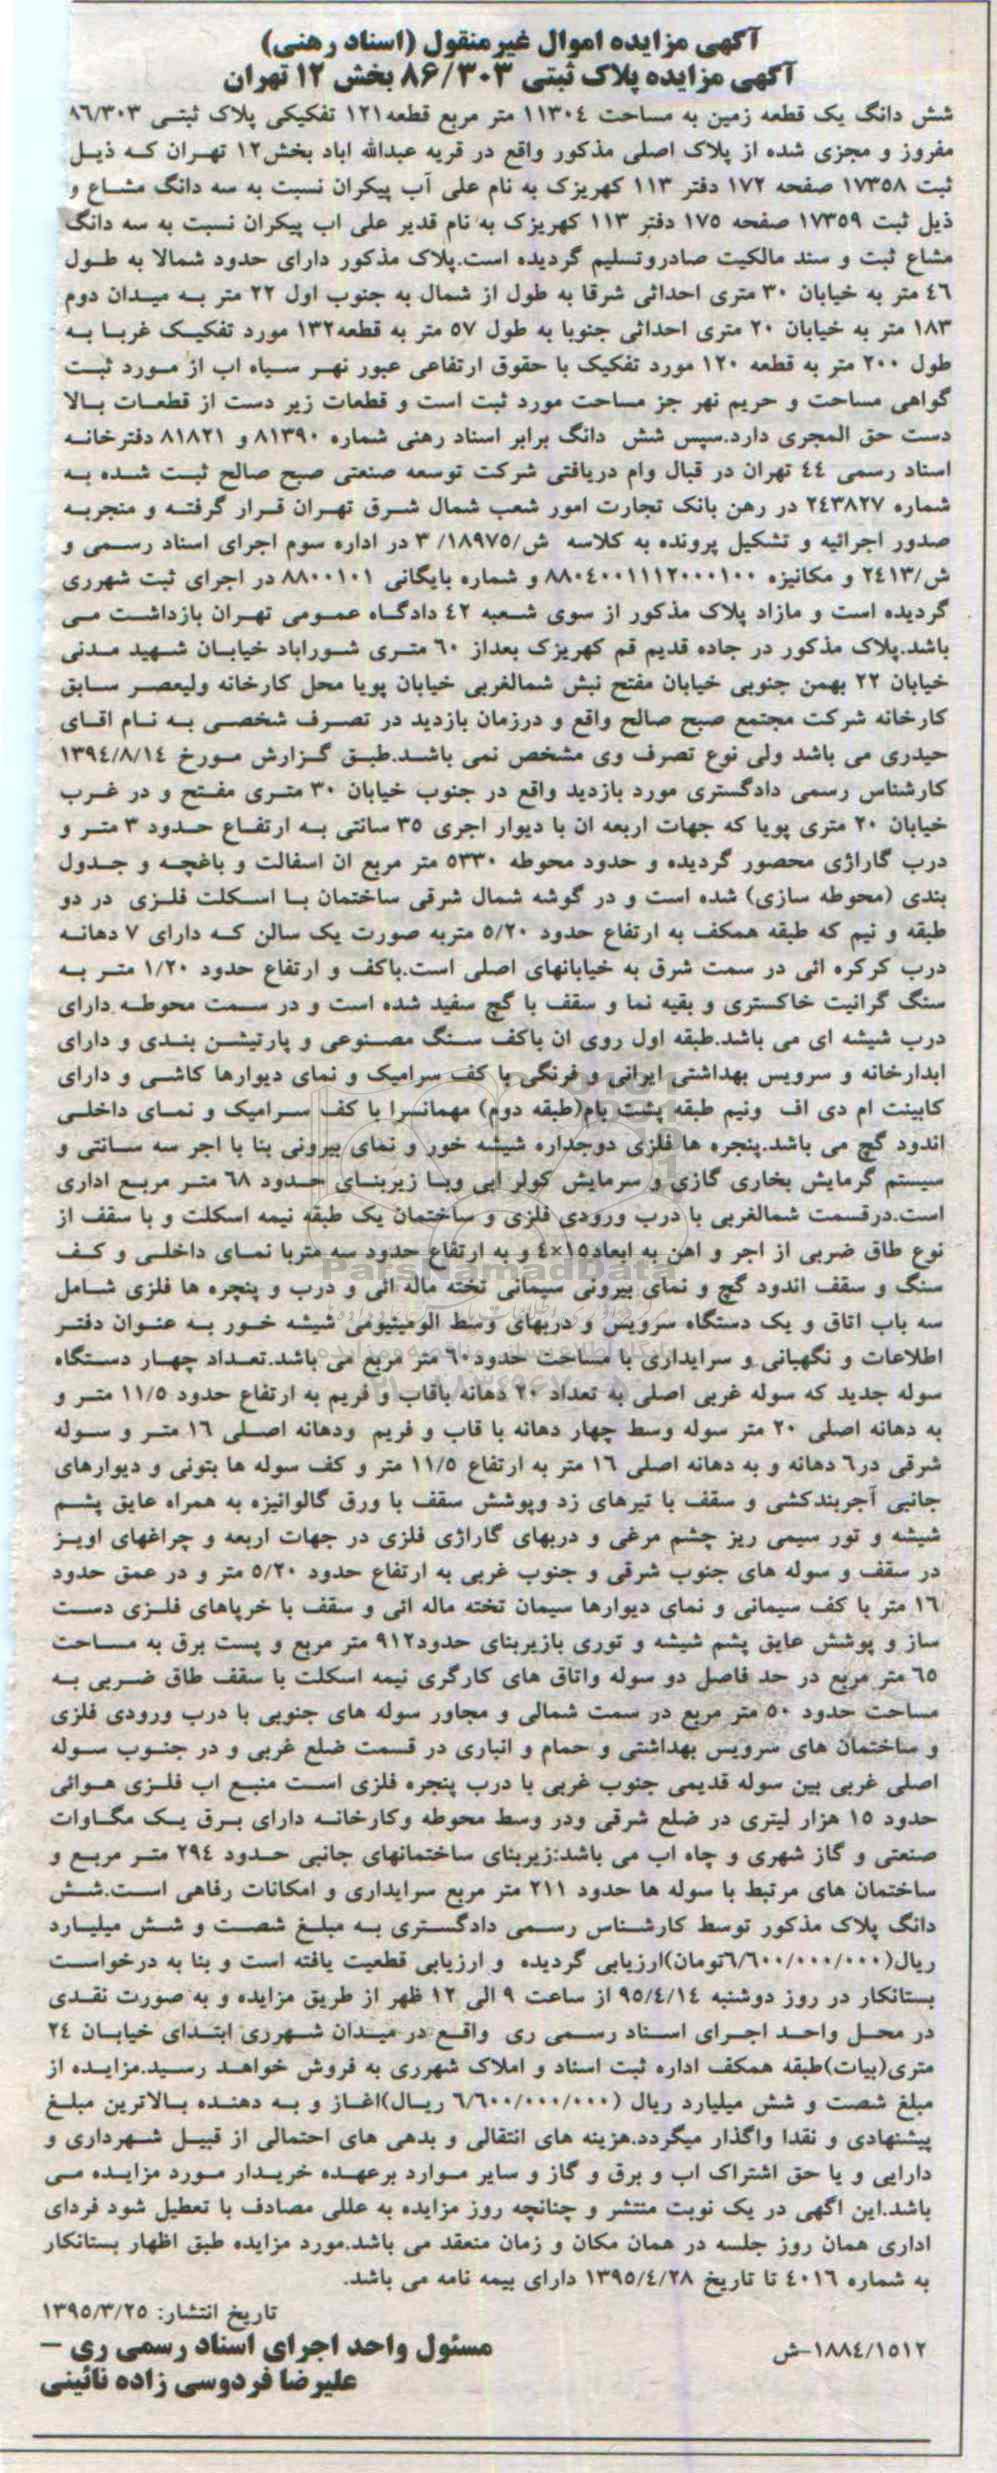 آگهی مزایده اموال غیرمنقول (اسناد رهنی)
آگهی مزایده پلاک ثبتی ۸۶/۳۰۳ بخش ۱۲ تهران
شش دانگ یک قطعه زمین به مساحت ۱۱۳۰٤ متر مربع قطعه۱۲۱ تفکیکی پلاک ثبتی ۸٦/۳۰۳
مفروز و مجزی شده از پلاک اصلی مذکور واقع در قریه عبدالله اباد بخش۱۲ تهران که ذیل
ثبت ۱۷۳۵۸ صفحه ۱۷۲ دفتر ۱۱۳ کهریزک به نام علی آب پیکران نسبت به سه دانگ مشاع و
ذیل ثبت ۱۷۳۵۹ صفحه ۱۷۵ دفتر ۱۱۳ کهریزک به نام قدیر علی اب پیکران نسبت به سه دانگ
مشاع ثبت و سند مالکیت صادروتسلیم گردیده است.پلاک مذکور دارای حدود شمالا به طول
٤٦ متر به خیابان ۳۰ متری احداثی شرقا به طول از شمال به جنوب اول ۲۲ متر به میدان دوم
۱۸۳ متر به خیابان ۲۰ متری احداثی جنوبا به طول ۵۷ متر به قطعه۱۳۲ مورد تفکیک غربا به
طول ۲۰۰ متر به قطعه ۱۲۰ مورد تفکیک با حقوق ارتفاعی عبور نهر سیاه اب از مورد ثبت
گواهی مساحت و حریم نهر جز مساحت مورد ثبت است و قطعات زیر دست از قطعات بالا
دست حق المجری دارد.سپس شش دانگ برابر اسناد رهنی شماره ۸۱۳۹۰ و ۸۱۸۲۱ دفترخانه
اسناد رسمی ٤٤ تهران در قبال وام دریافتی شرکت توسعه صنعتی صبح صالح ثبت شده به
شماره ۲٤۳۸۲۷ در رهن بانک تجارت امور شعب شمال شرق تهران قرار گرفته و منجربه
صدور اجرائیه و تشکیل پرونده به کلاسه ش/۱۸۹۷۵/ ۳ در اداره سوم اجرای اسناد رسمی و
ش/۲٤۱۳ و مکانیزه ۸۸۰٤۰۰۱۱۱۲۰۰۰۱۰۰ و شماره بایگانی ۸۸۰۰۱۰۱ در اجرای ثبت شهرری
گردیده است و مازاد پلاک مذکور از سوی شعبه ٤۲ دادگاه عمومی تهران بازداشت می
باشد.پلاک مذکور در جاده قدیم قم کهریزک بعداز ٦۰ متری شوراباد خیابان شهید مدنی
خیابان ۲۲ بهمن جنوبی خیابان مفتح نبش شمالغربی خیابان پویا محل کارخانه ولیعصر سابق
کارخانه شرکت مجتمع صبح صالح واقع و درزمان بازدید در تصرف شخصی به نام اقای
حیدری می باشد ولی نوع تصرف وی مشخص نمی باشد.طبق گزارش مورخ ۱۳۹٤/۸/۱٤
کارشناس رسمی دادگستری مورد بازدید واقع در جنوب خیابان ۳۰ متری مفتح و در غرب
خیابان ۲۰ متری پویا که جهات اربعه ان با دیوار اجری ۳۵ سانتی به ارتفاع حدود ۳ متر و
درب گاراژی محصور گردیده و حدود محوطه ۵۳۳۰ متر مربع ان اسفالت و باغچه و جدول
بندی (محوطه سازی) شده است و در گوشه شمال شرقی ساختمان با اسکلت فلزی در دو
طبقه و نیم که طبقه همکف به ارتفاع حدود ۵/۲۰ متربه صورت یک سالن که دارای ۷ دهانه
درب کرکره ائی در سمت شرق به خیابانهای اصلی است.باکف و ارتفاع حدود ۱/۲۰ متر به
سنگ گرانیت خاکستری و بقیه نما و سقف با گچ سفید شده است و در سمت محوطه دارای
درب شیشه ای می باشد.طبقه اول روی ان باکف سنگ مصنوعی و پارتیشن بندی و دارای
ابدارخانه و سرویس بهداشتی ایرانی و فرنگی با کف سرامیک و نمای دیوارها کاشی و دارای
کابینت ام دی اف ونیم طبقه پشت بام(طبقه دوم) مهمانسرا با کف سرامیک و نمای داخلی
اندود گچ می باشد.پنجره ها فلزی دوجداره شیشه خور و نمای بیرونی بنا با اجر سه سانتی و
سیستم گرمایش بخاری گازی و سرمایش کولر ابی وبا زیربنای حدود ٦۸ متر مربع اداری
است.درقسمت شمالغربی با درب ورودی فلزی و ساختمان یک طبقه نیمه اسکلت و با سقف از
نوع طاق ضربی از اجر و اهن به ابعاد۱۵×٤ و به ارتفاع حدود سه متربا نمای داخلی و کف
سنگ و سقف اندود گچ و نمای بیرونی سیمانی تخته ماله ائی و درب و پنجره ها فلزی شامل
سه باب اتاق و یک دستگاه سرویس و دربهای وسط الومینیومی شیشه خور به عنوان دفتر
اطلاعات و نگهبانی و سرایداری با مساحت حدود٦۰ متر مربع می باشد.تعداد چهار دستگاه
سوله جدید که سوله غربی اصلی به تعداد ۲۰ دهانه باقاب و فریم به ارتفاع حدود ۱۱/۵ متر و
به دهانه اصلی ۲۰ متر سوله وسط چهار دهانه با قاب و فریم ودهانه اصلی ۱٦ متر و سوله
شرقی در٦ دهانه و به دهانه اصلی ۱٦ متر به ارتفاع ۱۱/۵ متر و کف سوله ها بتونی و دیوارهای
جانبی آجربندکشی و سقف با تیرهای زد وپوشش سقف با ورق گالوانیزه به همراه عایق پشم
شیشه و تور سیمی ریز چشم مرغی و دربهای گاراژی فلزی در جهات اربعه و چراغهای اویز
در سقف و سوله های جنوب شرقی و جنوب غربی به ارتفاع حدود ۵/۲۰ متر و در عمق حدود
۱٦ متر با کف سیمانی و نمای دیوارها سیمان تخته ماله ائی و سقف با خرپاهای فلزی دست
ساز و پوشش عایق پشم شیشه و توری بازیربنای حدود۹۱۲ متر مربع و پست برق به مساحت
٦۵ متر مربع در حد فاصل دو سوله واتاق های کارگری نیمه اسکلت با سقف طاق ضربی به
مساحت حدود ۵۰ متر مربع در سمت شمالی و مجاور سوله های جنوبی با درب ورودی فلزی
و ساختمان های سرویس بهداشتی و حمام و انباری در قسمت ضلع غربی و در جنوب سوله
اصلی غربی بین سوله قدیمی جنوب غربی با درب پنجره فلزی است منبع اب فلزی هوائی
حدود ۱۵ هزار لیتری در ضلع شرقی ودر وسط محوطه وکارخانه دارای برق یک مگاوات
صنعتی و گاز شهری و چاه اب می باشد:زیربنای ساختمانهای جانبی حدود ۲۹٤ متر مربع و
ساختمان های مرتبط با سوله ها حدود ۲۱۱ متر مربع سرایداری و امکانات رفاهی است.شش
دانگ پلاک مذکور توسط کارشناس رسمی دادگستری به مبلغ شصت و شش میلیارد
ریال(٦/٦۰۰/۰۰۰/۰۰۰تومان)ارزیابی گردیده و ارزیابی قطعیت یافته است و بنا به درخواست
بستانکار در روز دوشنبه ۹۵/٤/۱٤ از ساعت ۹ الی ۱۲ ظهر از طریق مزایده و به صورت نقدی
در محل واحد اجرای اسناد رسمی ری واقع در میدان شهرری ابتدای خیابان ۲٤
متری(بیات)طبقه همکف اداره ثبت اسناد و املاک شهرری به فروش خواهد رسید.مزایده از
مبلغ شصت و شش میلیارد ریال (٦/٦۰۰/۰۰۰/۰۰۰ ریال)اغاز و به دهنده بالاترین مبلغ
پیشنهادی و نقدا واگذار میگردد.هزینه های انتقالی و بدهی های احتمالی از قبیل شهرداری و
دارایی و یا حق اشتراک اب و برق و گاز و سایر موارد برعهده خریدار مورد مزایده می
باشد.این اگهی در یک نوبت منتشر و چنانچه روز مزایده به عللی مصادف با تعطیل شود فردای
اداری همان روز جلسه در همان مکان و زمان منعقد می باشد.مورد مزایده طبق اظهار بستانکار
به شماره ٤۰۱٦ تا تاریخ ۱۳۹۵/٤/۲۸ دارای بیمه نامه می باشد.
تاریخ انتشار: ۱۳۹۵/۳/۲۵
مسئول واحد اجرای اسناد رسمی ری –
علیرضا فردوسی زاده نائینی
۱۸۸٤/۱۵۱۲-ش
ParsNamadData